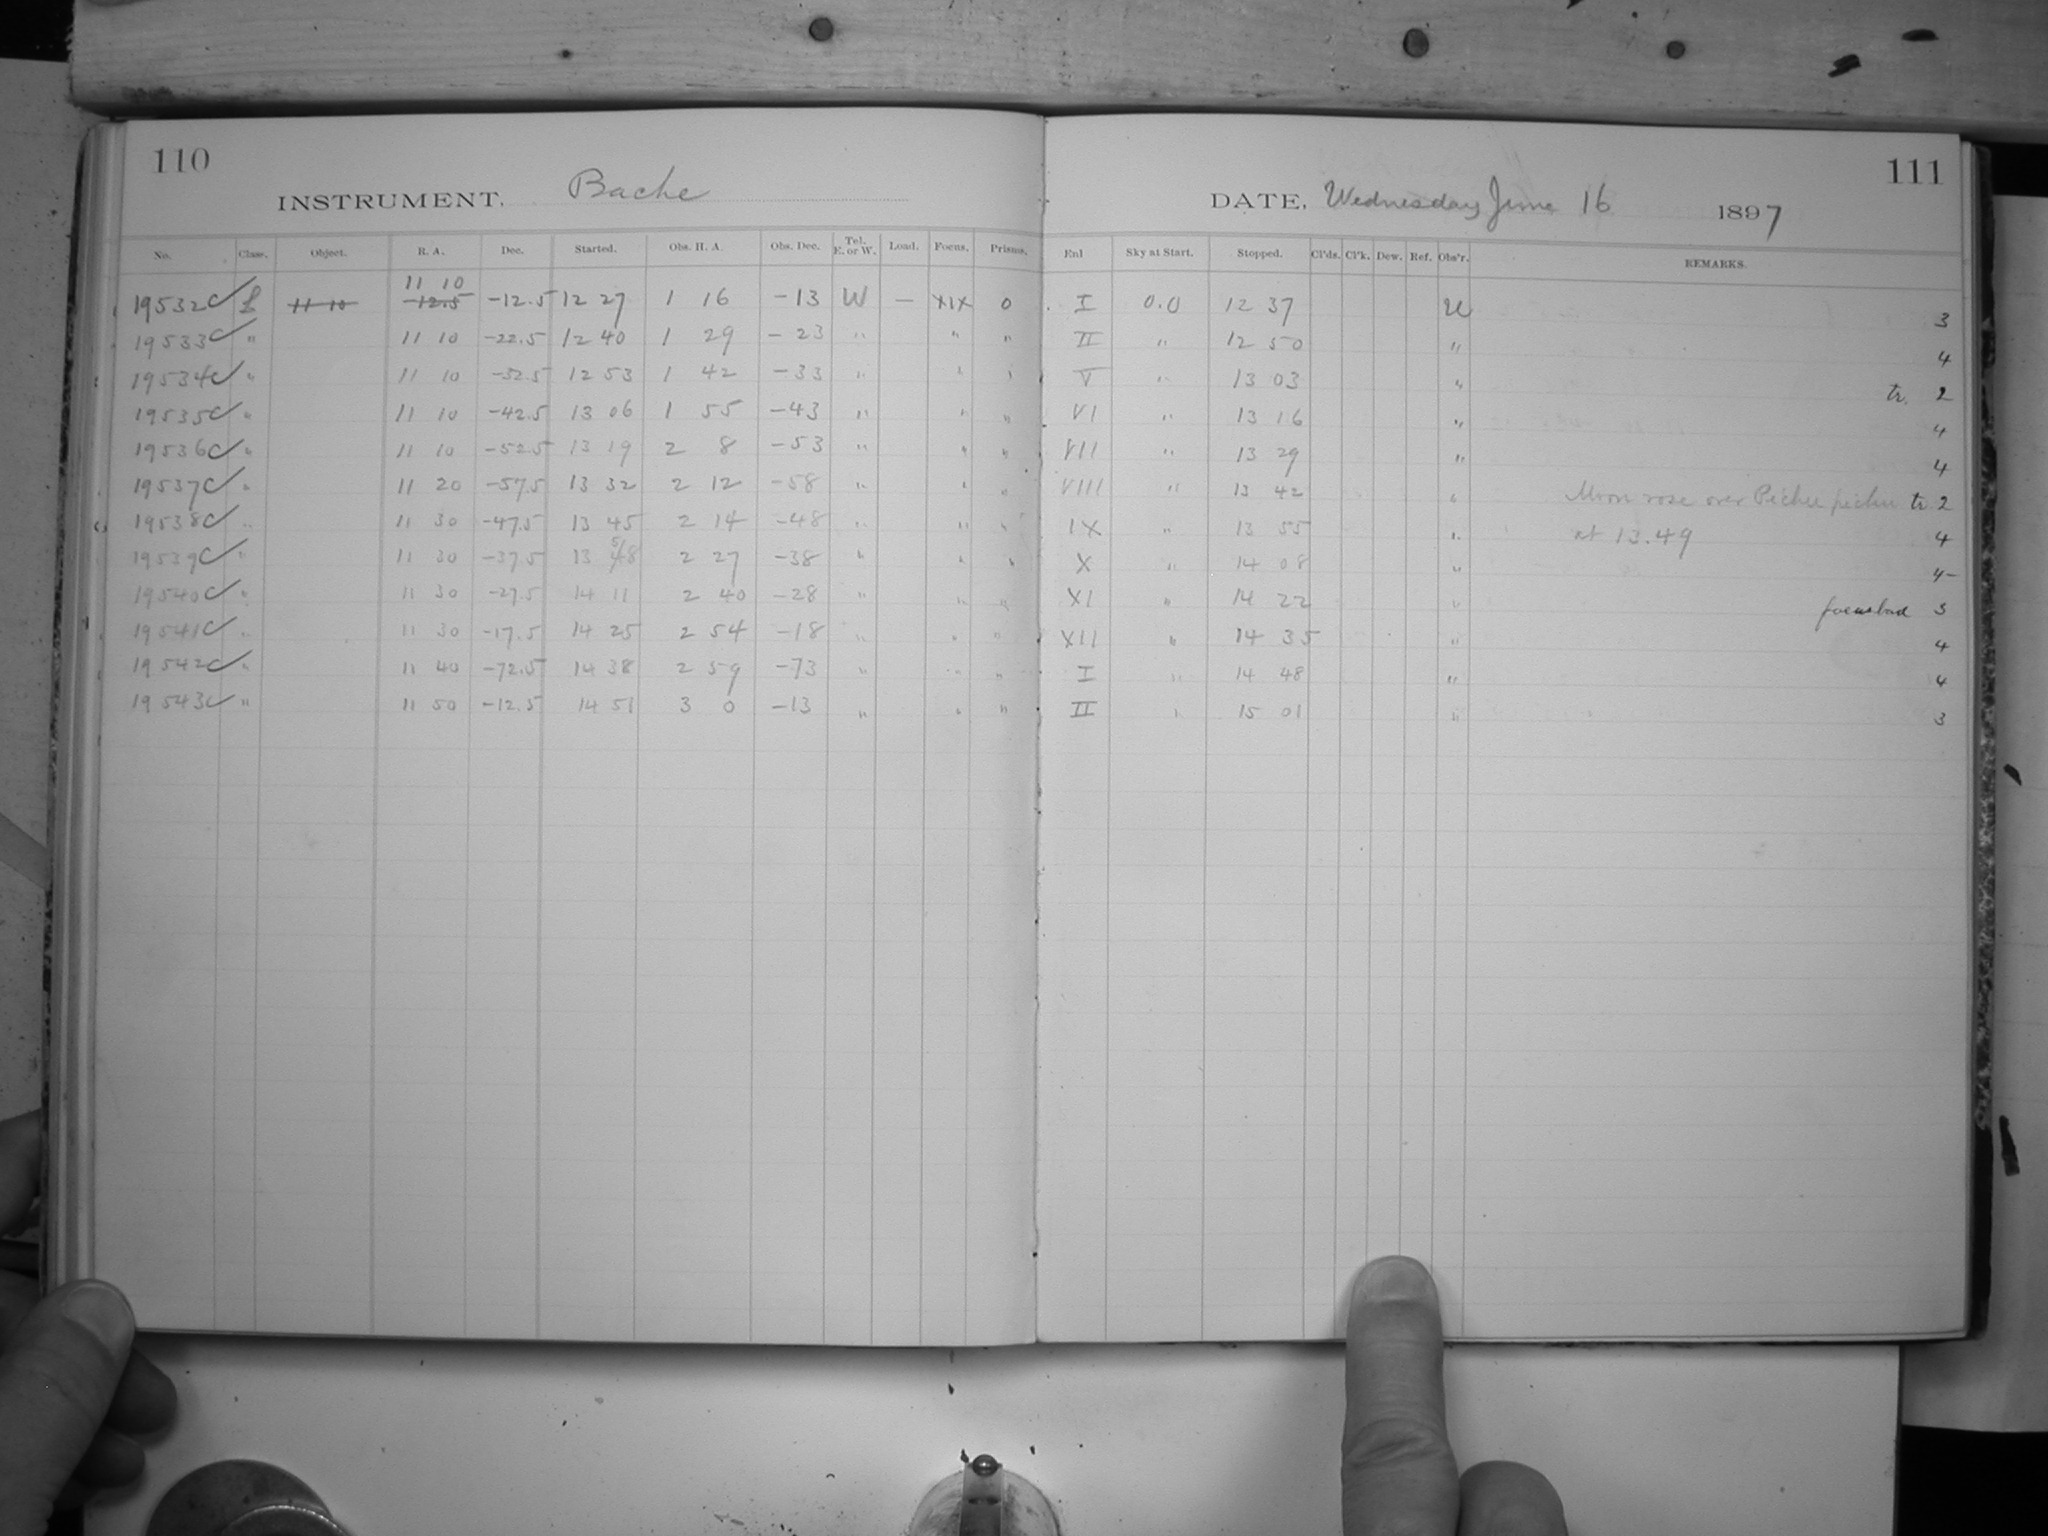 110
INSTRUMENT. Bache
No. Class. Object. R. A. Dec. Started. Obs. H. A. Obs. Dec. Tel. E. or W. Load. Focus. Prisms.
11 10
19532 C L 11 10 -12.5 -12.5 12 27 1 16 -13 W — XIX 0
19533 C " 11 10 -22.5 12 40 1 29 -23 " " "
19534 C " 11 10 -32.5 12 53 1 42 -33 " " "
19535 C " 11 10 -42.5 13 06 1 55 -43 " " "
19536 C " 11 10 -52.5 13 19 2 8 -53 " " "
19537 C " 11 20 -57.5 13 32 2 12 -58 " " "
19538 C " 11 30 -47.5 13 45 2 14 -48 " " "
19539 C " 11 30 -37.5 13 58 2 27 -38 " " "
19540 C " 11 30 -27.5 14 11 2 40 -28 " " "
19541 C " 11 30 -17.5 14 25 2 54 -18 " " "
19542 C " 11 40 -72.5 14 38 2 59 -73 " " "
19543 C " 11 50 -12.5 14 51 3 0 -13 " " "
111
DATE, Wednesday June 16 1897
Enl Sky at Start. Stopped. Cl'ds. Cl'k. Dew. Ref. Obs'r. REMARKS.
I 0.0 12 37 U 3
II " 12 50 " 4
V " 13 03 " tr. 2
VI " 13 16 " 4
VII " 13 29 " 4
VIII " 13 42 " Moon rose over Pichu pichu tr 2
IX " 13 55 " at 13.49 4
X " 14 08 " 4-
XI " 14 22 " focus bad 3
XII " 14 35 " 4
I " 14 48 " 4
II " 15 01 " 3